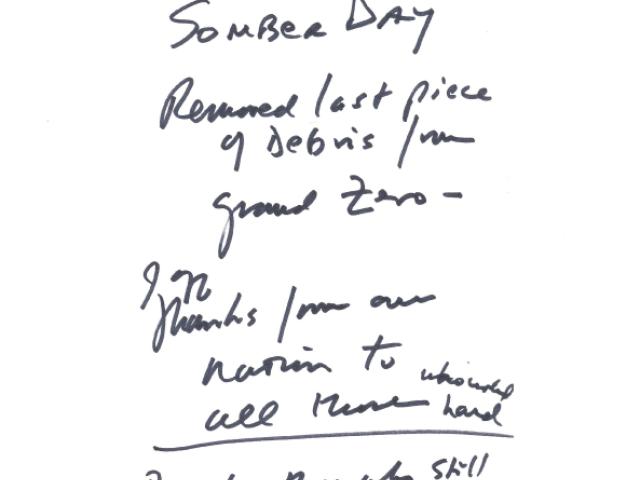 SOMBER DAY
Removed last piece
of Debris from
ground Zero -
thanks from our
nation to
all those who worked
hard
still